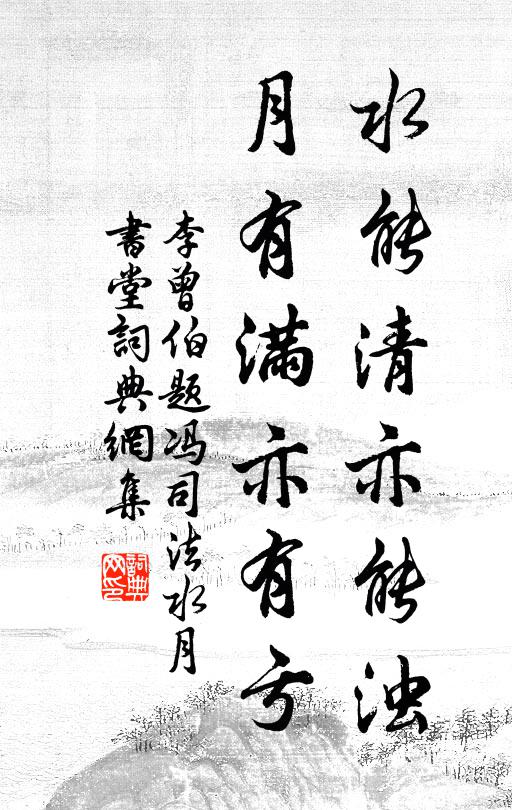 水能清亦能浊
月有满亦有亏
李曾伯题冯司法水月
書堂詞典網集
詞典网印